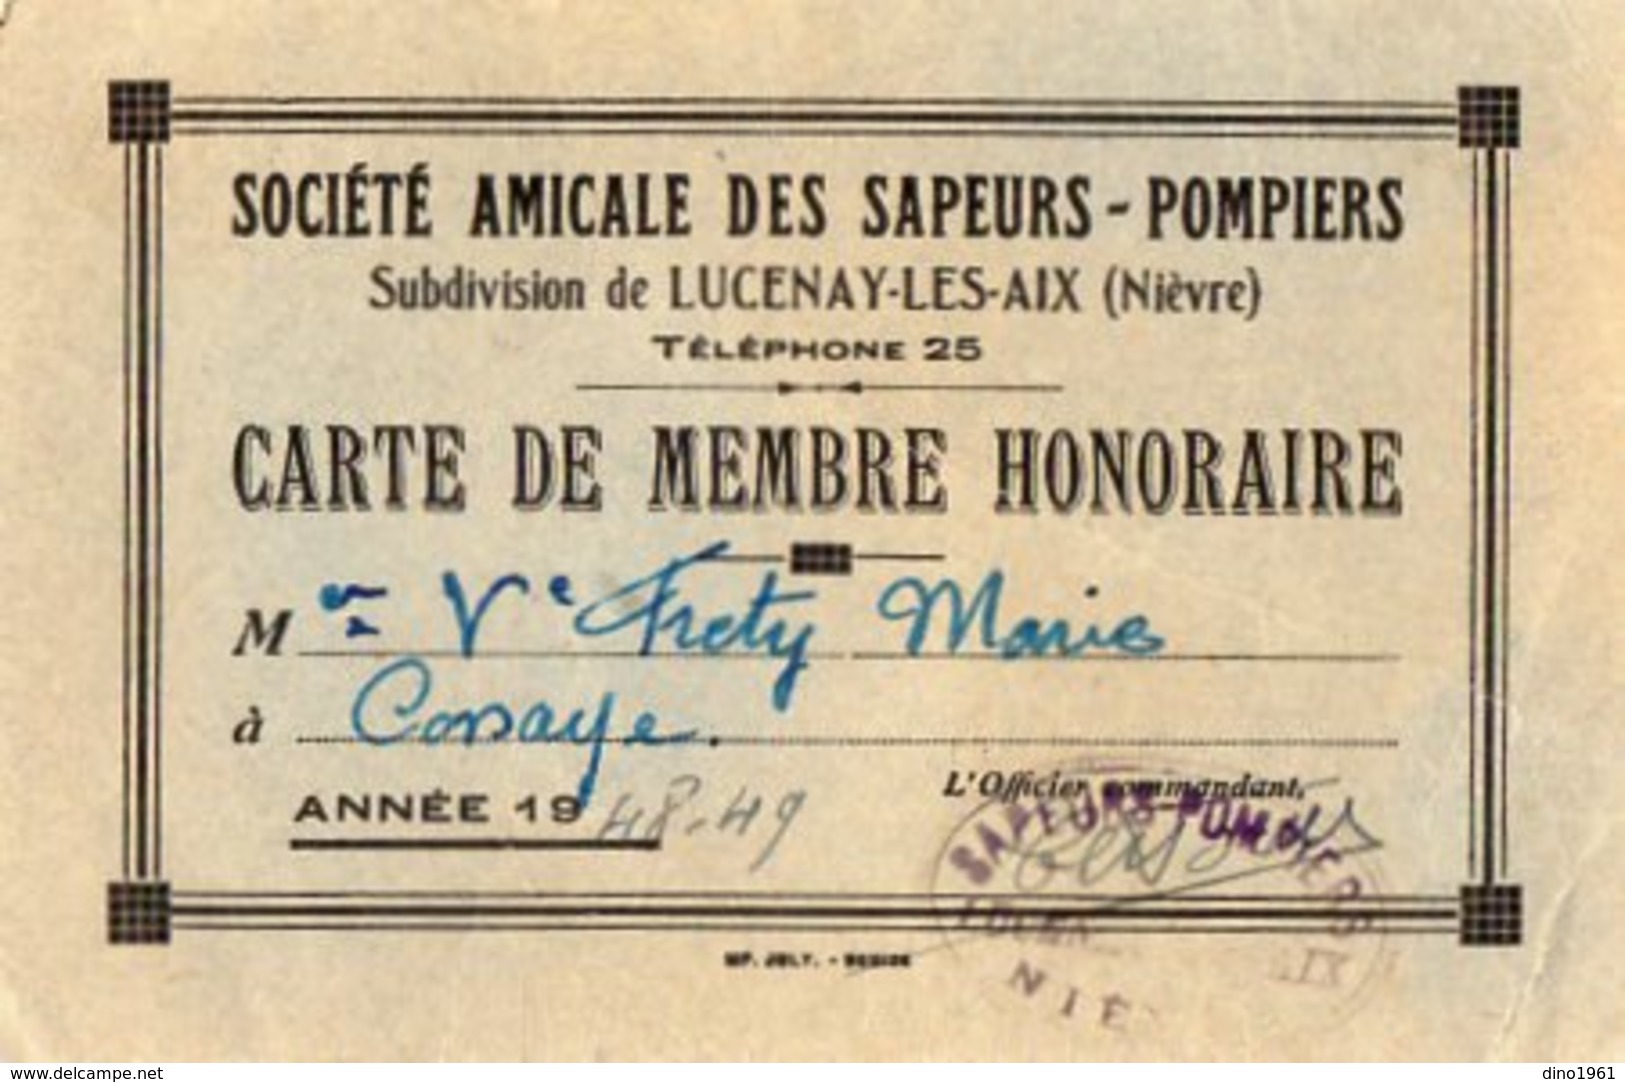 SOCIÉTÉ AMICALE DES SAPEURS - POMPIERS
Subdivision de LUCENAY-LES-AIX (Nièvre)
TÉLÉPHONE 25
CARTE DE MEMBRE HONORAIRE
M Vᵉ Frety Marie
à Cossaye.
ANNÉE 19 48-49
L'Officier commandant,
SAPEURS-POMPIERS
NIÈ
IMP. JOLY. - DECIZE
www.delcampe.net
dino1961